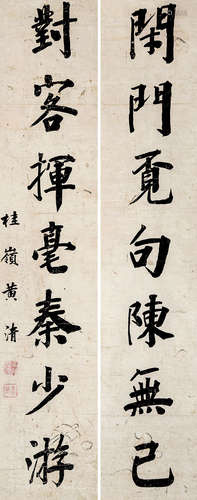 閉門覓句陳無己
對客揮毫秦少游
桂嶺黃清